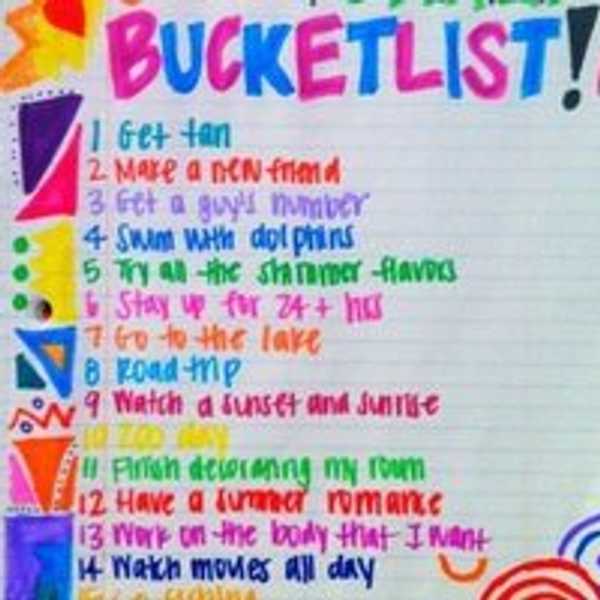 BUCKETLIST!
1 Get tan
2 Make a new friend
3 Get a guy's number
4 Swim with dolphins
5 Try all the shimmer flavors
6 Stay up for 24+ hrs
7 Go to the lake
8 Road trip
9 Watch a sunset and sunrise
10 Zoo day
11 Finish decorating my room
12 Have a summer romance
13 Work on the body that I want
14 Watch movies all day